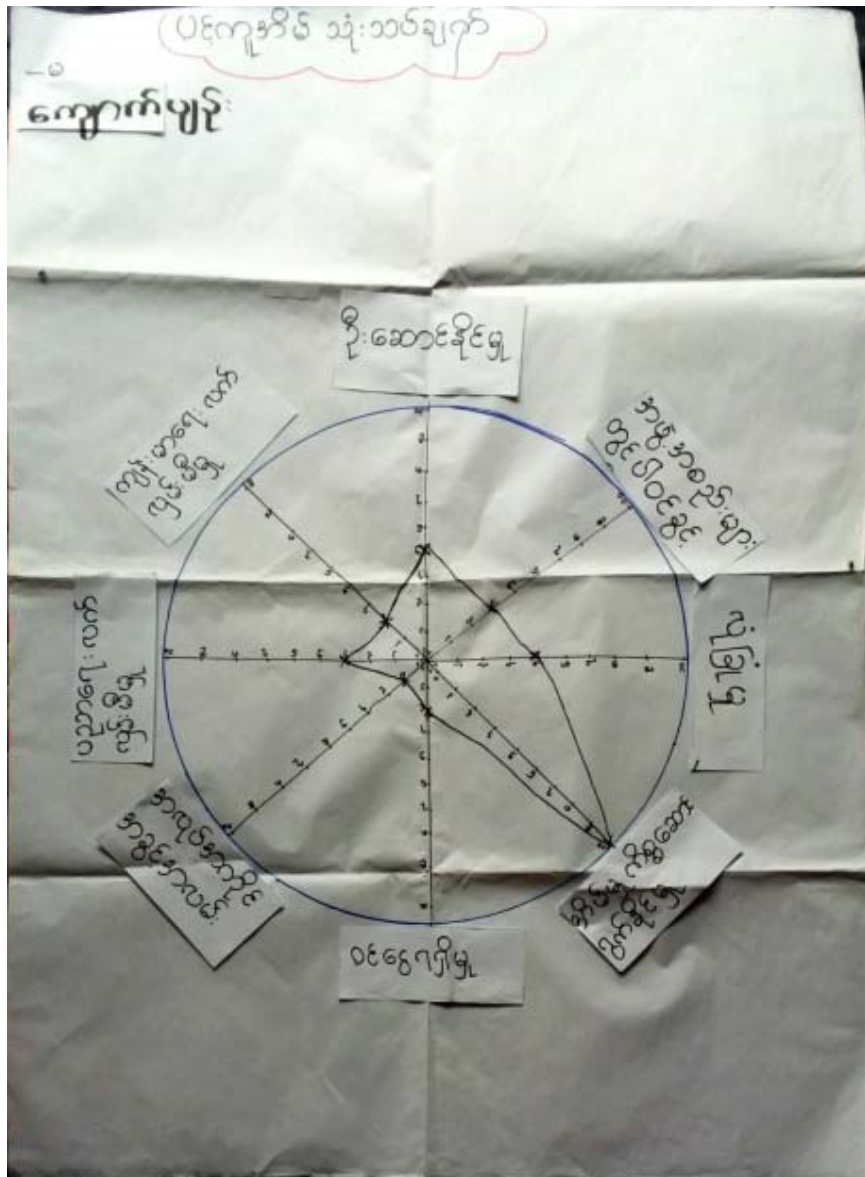 ပင့်ကူအိမ် သုံးသပ်ချက်
-မ
ကျောက်ပျဉ်း
ဦးဆောင်နိုင်မှု
အဖွဲ့အစည်းများ
တွင်ပါဝင်ခွင့်
လုံခြုံမှု
ကိစ္စဆောင်
ရွက်နိုင်မှု
ဝင်ငွေရှိမှု
အလုပ်အကိုင်
အခွင့်အလမ်း
ပညာရေးလက်
လှမ်းမီမှု
ကျန်းမာရေးလက်
လှမ်းမီမှု